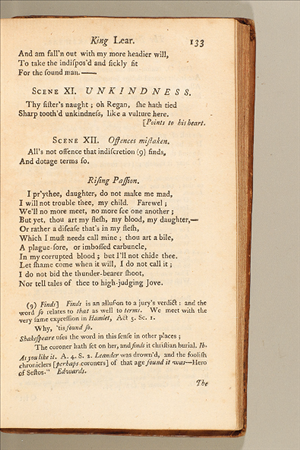 King Lear. 133
And am fall'n out with my more headier will,
To take the indiſpos'd and ſickly fit
For the ſound man.——
SCENE XI. UNKINDNESS.
Thy ſiſter's naught; oh Regan, ſhe hath tied
Sharp tooth'd unkindneſs, like a vulture here.
[Points to his heart.
SCENE XII. Offences miſtaken.
All's not offence that indiſcretion (9) finds,
And dotage terms ſo.
Riſing Paſſion.
I pr'ythee, daughter, do not make me mad,
I will not trouble thee, my child. Farewel;
We'll no more meet, no more ſee one another;
But yet, thou art my fleſh, my blood, my daughter,—
Or rather a diſeaſe that's in my fleſh,
Which I muſt needs call mine; thou art a bile,
A plague-ſore, or imboſſed carbuncle,
In my corrupted blood; but I'll not chide thee.
Let ſhame come when it will, I do not call it;
I do not bid the thunder-bearer ſhoot,
Nor tell tales of thee to high-judging Jove.
(9) Finds] Finds is an alluſion to a jury's verdict: and the
word ſo relates to that as well to terms. We meet with the
very ſame expreſſion in Hamlet, Act 5. Sc. 1.
Why, 'tis found ſo.
Shakeſpeare uſes the word in this ſenſe in other places;
The coroner hath ſet on her, and finds it chriſtian burial. Ib.
As you like it. A. 4. S. 2. Leander was drown'd, and the fooliſh
chroniclers [perhaps coroners] of that age found it was—Hero
of Seſtos." Edwards.
The